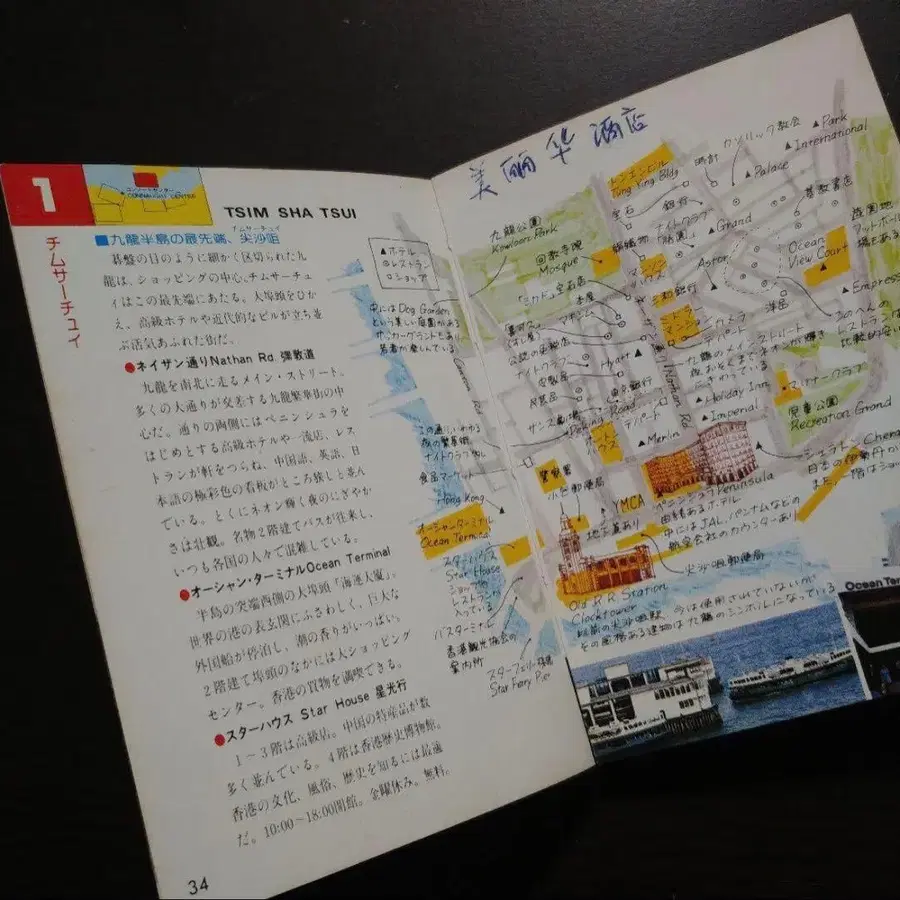 1
コンノートセンター
CONNAUGHT CENTRE
TSIM SHA TSUI
チムサーチュイ
チムサーチュイ
■九龍半島の最先端、尖沙咀
碁盤の目のように細かく区切られた九
龍は、ショッピングの中心、チムサーチュ
イはこの最先端にあたる。大埠頭をひか
え、高級ホテルや近代的なビルが立ち並
ぶ活気あふれた街だ。
●ネイザン通りNathan Rd. 彌敦道
九龍を南北に走るメイン・ストリート。
多くの大通りが交差する九龍繁華街の中
心だ。通りの両側にはペニンシュラを
はじめとする高級ホテルや一流店、レス
トランが軒をつらね、中国語、英語、日
本語の極彩色の看板がところ狭しと並ん
でいる。とくにネオン輝く夜のにぎやか
さは壮観。名物2階建てバスが往来し、
いつも各国の人々で混雑している。
●オーシャン・ターミナルOcean Terminal
半島の突端西側の大埠頭「海運大廈」。
世界の港の表玄関にふさわしく、巨大な
外国船が停泊し、潮の香りがいっぱい。
2階建て埠頭のなかには大ショッピング
センター。香港の買物を満喫できる。
●スターハウス Star House 星光行
1～3階は高級店。中国の特産品が数
多く並んでいる。4階は香港歴史博物館。
香港の文化、風俗、歴史を知るには最適
だ。10:00～18:00開館。金曜休み。無料。
34
美丽华酒店
▲ホテル
◎レストラン
□ショップ
九龍公園
Kowloon Park
中には Dog Garden
という美しい庭園がある
回教寺院
Mosque
トンエンビル
Tung Ying Bldg
時計
カソリック教会
▲Park
▲International
▲Palace
宝石
銀行
ナイトクラブ
▲Grand
基教書店
遊園地
Astor
Ocean
View Court
▲Empress
ミカド宝石店
本屋
マキシム
ナイトクラブ
Hyatt▲
東京銀行
Peking Road
デパート
九龍のメインストリート
▲Holiday Inn
▲Imperial
▲Merlin
児童公園
Recreation Grand
食品マーケット
Hong Kong
警察署
小型郵便局
YMCA
地下道あり
ペニンシュラPeninsula
由緒あるホテル
中にはJAL、パンナムなどの
航空会社のカウンターあり
尖沙咀郵便局
オーシャンターミナル
Ocean Terminal
スターハウス
Star House
ショップや
レストランが
入っている
バスターミナル
香港観光協会の
案内所
スターフェリー埠頭
Star Ferry Pier
Old R R Station
Clocktower
以前の尖沙咀駅 今は使用されていないが
その風格ある建物は九龍のシンボルになっている
Ocean Ter